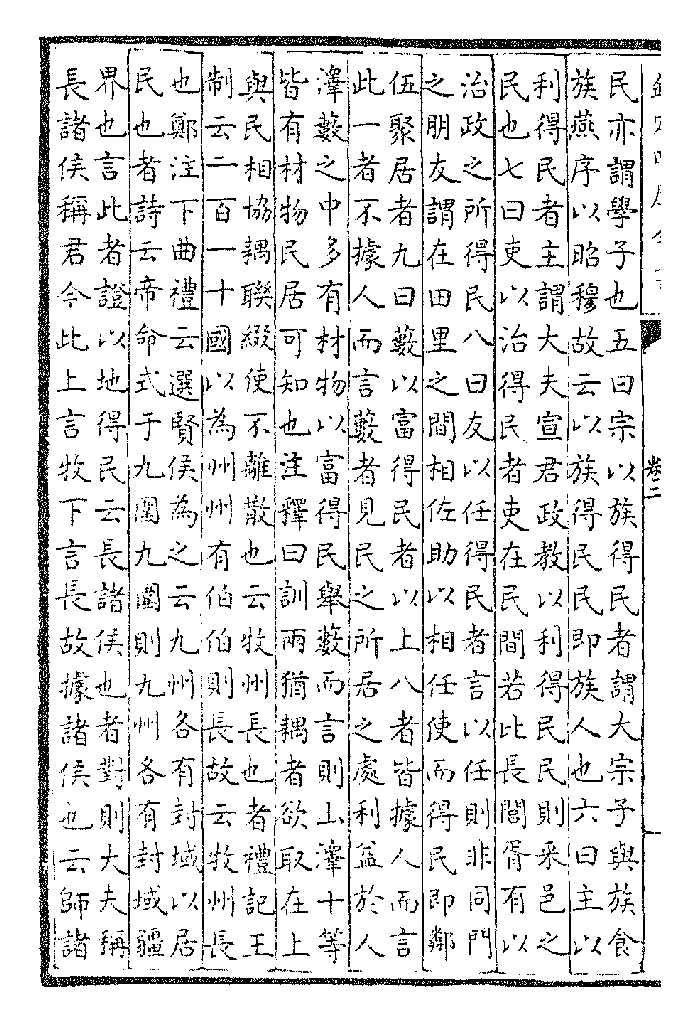 卷二
民亦謂學子也五曰宗以族得民者謂大宗子與族食
族燕序以昭穆故云以族得民民即族人也六曰主以
利得民者主謂大夫宣君政教以利得民民則采邑之
民也七曰吏以治得民者吏在民間若比長閭胥有以
治政之所得民八曰友以任得民者言以任則非同門
之朋友謂在田里之間相佐助以相任使而得民即鄰
伍聚居者九曰藪以富得民者以上八者皆據人而言
此一者不據人而言藪者見民之所居之處利益於人
澤藪之中多有材物以富得民舉藪而言則山澤十等
皆有材物民居可知也注釋曰訓兩猶耦者欲取在上
與民相協耦聯綴使不離散也云牧州長也者禮記王
制云二百一十國以為州州有伯伯則長故云牧州長
也鄭注下曲禮云選賢侯為之云九州各有封域以居
民也者詩云帝命式于九圍九圍則九州各有封域疆
界也言此者證以地得民云長諸侯也者對則大夫稱
長諸侯稱君今此上言牧下言長故據諸侯也云師諸